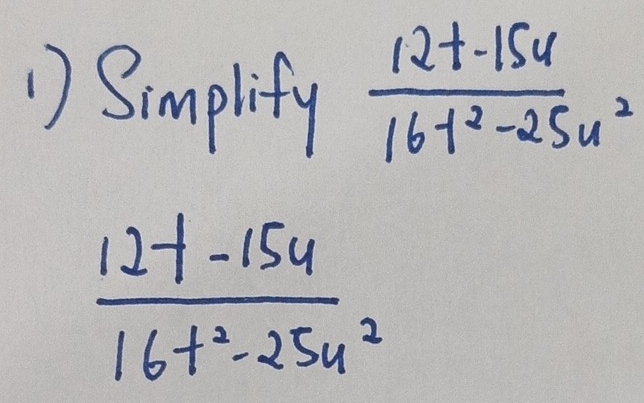 1) Simplify (12t-15u)/(16t²-25u²)
(12t-15u)/(16t²-25u²)